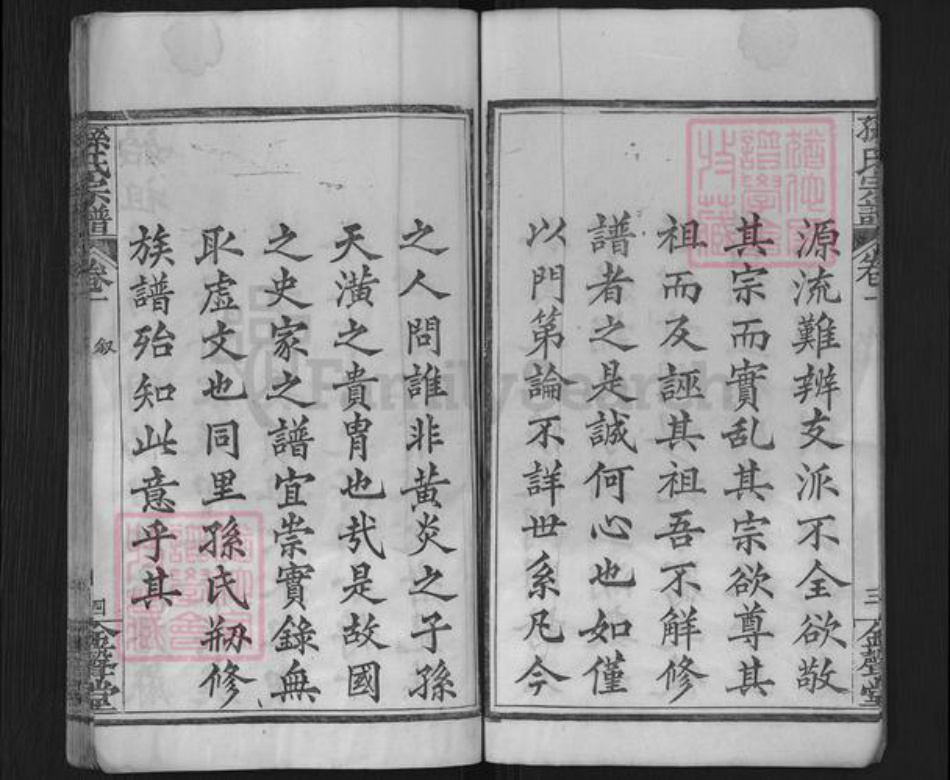 孫氏宗譜 卷一 三 金聲堂
源流難辨支派不全欲敬
其宗而實乱其宗欲尊其
祖而反誣其祖吾不解修
譜者之是誠何心也如僅
以門第論不詳世系凡今
之人問誰非黃炎之子孫
天潢之貴胄也㢤是故國
之史家之譜宜崇實錄無
取虚文也同里孫氏剏修
族譜殆知此意乎其
孫氏宗譜 卷一 叙 四 金聲堂
FamilySearch